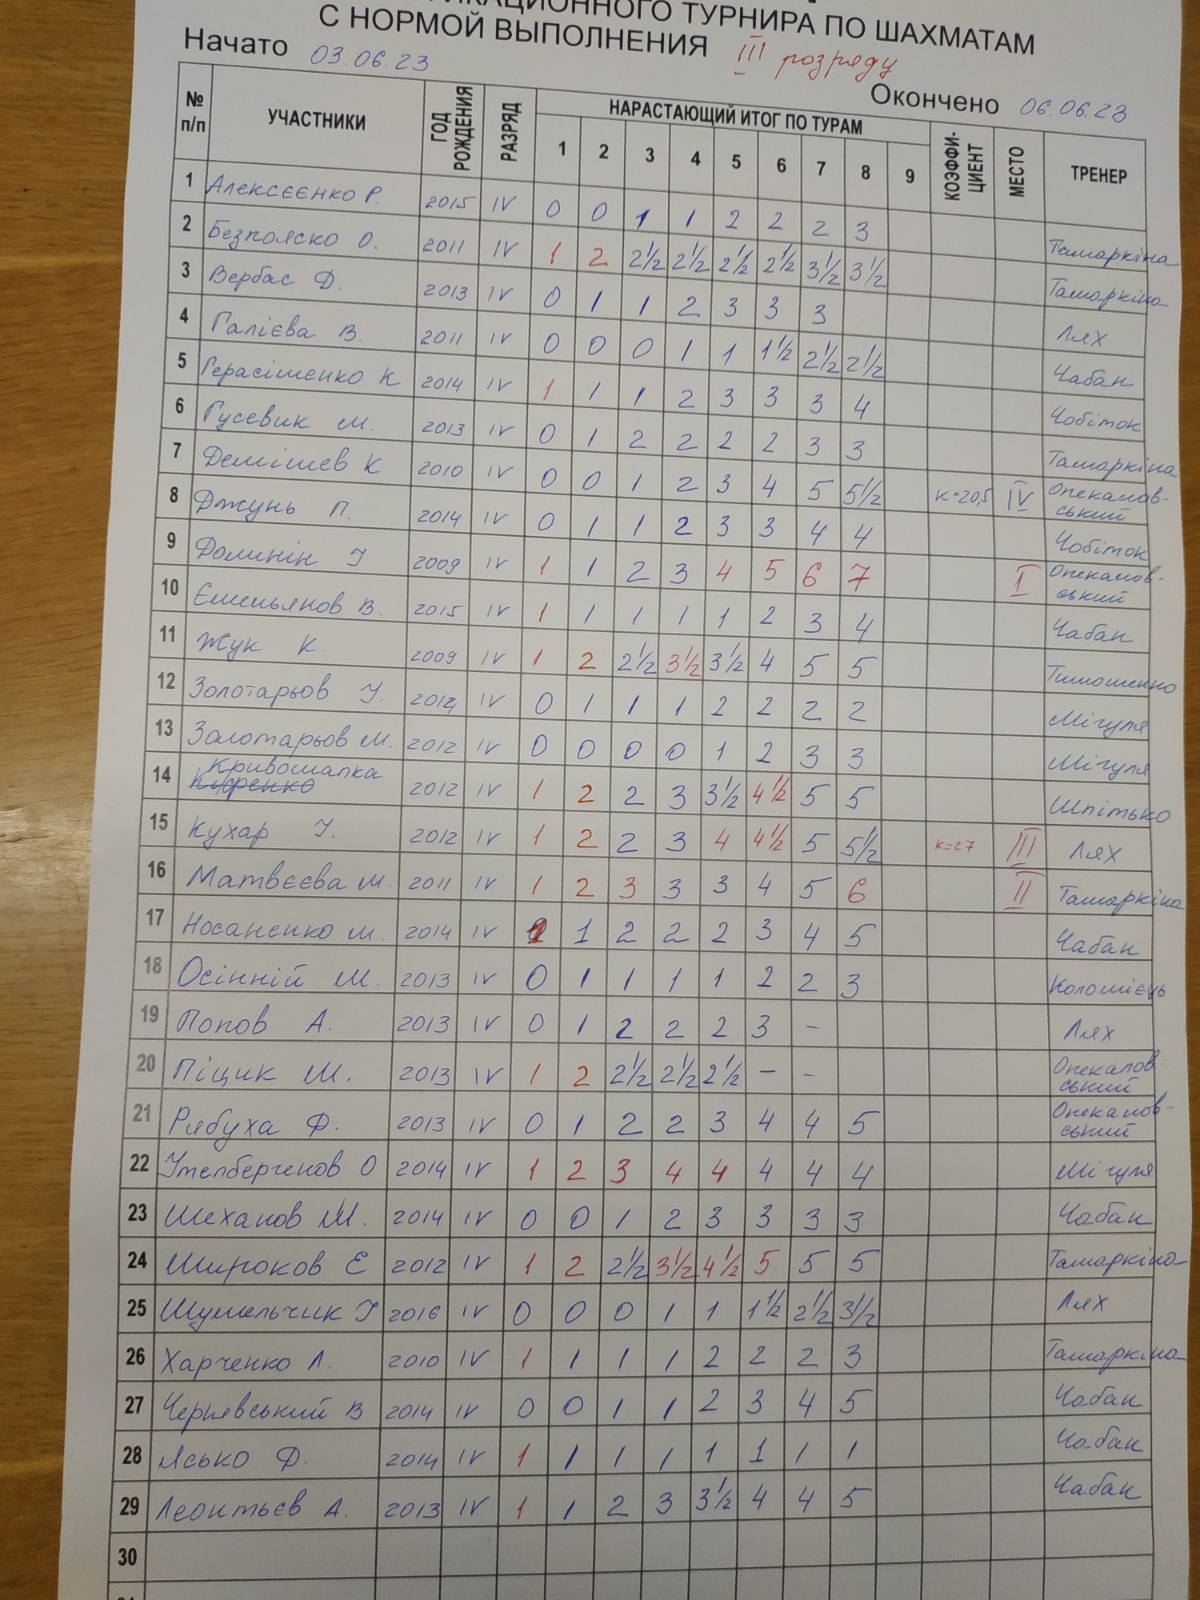 КАЦИОННОГО ТУРНИРА ПО ШАХМАТАМ
С НОРМОЙ ВЫПОЛНЕНИЯ III розряду
Начато 03.06.23 Окончено 06.06.23
№ п/п УЧАСТНИКИ ГОД РОЖДЕНИЯ РАЗРЯД НАРАСТАЮЩИЙ ИТОГ ПО ТУРАМ КОЭФФИ-ЦИЕНТ МЕСТО ТРЕНЕР
1 2 3 4 5 6 7 8 9
1 Алексєєнко Р. 2015 IV 0 0 1 1 2 2 2 3 Тамаркіна
2 Безпояско О. 2011 IV 1 2 2½ 2½ 2½ 2½ 3½ 3½ Тамаркіна
3 Вербас Д. 2013 IV 0 1 1 2 3 3 3 Лях
4 Галієва В. 2011 IV 0 0 0 1 1 1½ 2½ 2½ Чабан
5 Герасіменко К 2014 IV 1 1 1 2 3 3 3 4 Чобіток
6 Гусевик М. 2013 IV 0 1 2 2 2 2 3 3 Тамаркіна
7 Демішев К 2010 IV 0 0 1 2 3 4 5 5½ К=20,5 IV Опекаловський
8 Джунь П. 2014 IV 0 1 1 2 3 3 4 4 Чобіток
9 Долинін І 2009 IV 1 1 2 3 4 5 6 7 I Опекаловський
10 Ємельянов В. 2015 IV 1 1 1 1 1 2 3 4 Чабан
11 Жук К. 2009 IV 1 2 2½ 3½ 3½ 4 5 5 Тимошенко
12 Золотарьов У. 2012 IV 0 1 1 1 2 2 2 2 Мігуля
13 Золотарьов М. 2012 IV 0 0 0 0 1 2 3 3 Мігуля
14 Кривошапка 2012 IV 1 2 2 3 3½ 4½ 5 5 Шпітько
15 Кухар І. 2012 IV 1 2 2 3 4 4½ 5 5½ К=27 III Лях
16 Матвєєва М. 2011 IV 1 2 3 3 3 4 5 6 II Тамаркіна
17 Носаненко М. 2014 IV 1 1 2 2 2 3 4 5 Чабан
18 Осінній М. 2013 IV 0 1 1 1 1 2 2 3 Коломієць
19 Попов А. 2013 IV 0 1 2 2 2 3 – Лях
20 Піцик М. 2013 IV 1 2 2½ 2½ 2½ – – Опекаловський
21 Рябуха Ф. 2013 IV 0 1 2 2 3 4 4 5 Опекаловський
22 Утепбергенов О 2014 IV 1 2 3 4 4 4 4 4 Мігуля
23 Шеханов М. 2014 IV 0 0 1 2 3 3 3 3 Чабан
24 Широков Є 2012 IV 1 2 2½ 3½ 4½ 5 5 5 Тамаркіна
25 Шумельчик І 2016 IV 0 0 0 1 1 1½ 2½ 3½ Лях
26 Харченко Л. 2010 IV 1 1 1 1 2 2 2 3 Тамаркіна
27 Чернявський В 2014 IV 0 0 1 1 2 3 4 5 Чабан
28 Ясько Д. 2014 IV 1 1 1 1 1 1 1 1 Чабан
29 Леонтьєв А. 2013 IV 1 1 2 3 3½ 4 4 5 Чабан
30